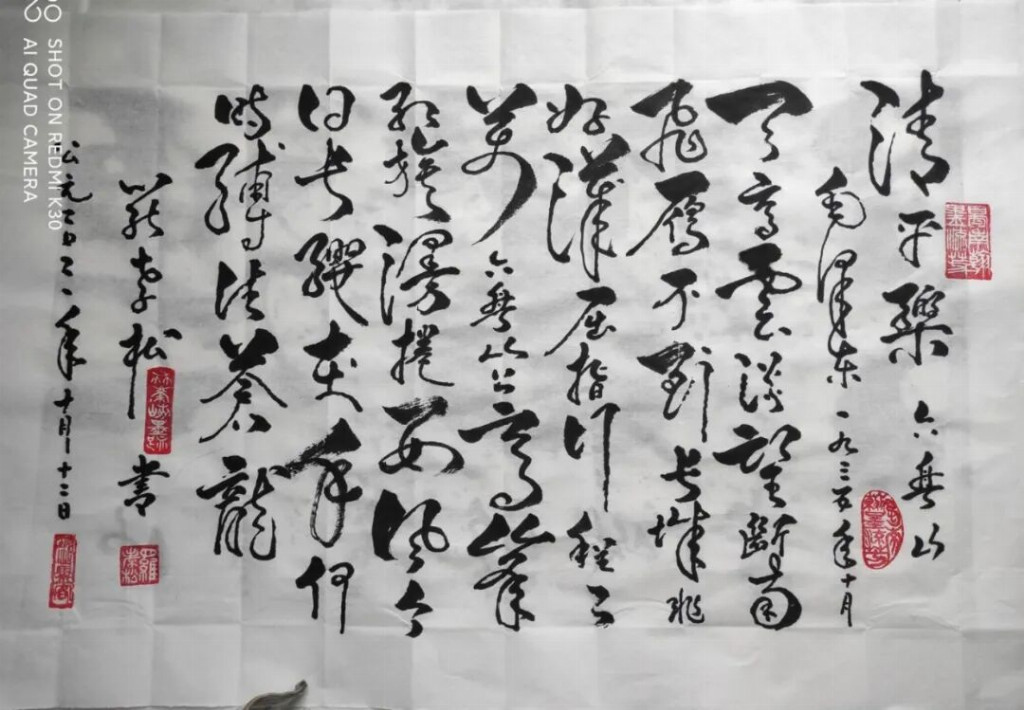 清平樂 六盤山
毛澤東 一九三五年十月
天高雲淡望斷南
飛雁不到長城非
好漢屈指行程二
萬六盤山上高峰
紅旗漫捲西風今
日長纓在手何
時縛住蒼龍
羅孝松書
公元二〇二一年十月十二日
SHOT ON REDMI K30
AI QUAD CAMERA